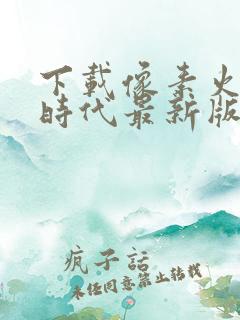 下載像素火
時代最新版
疯子話
未任同意禁止转載